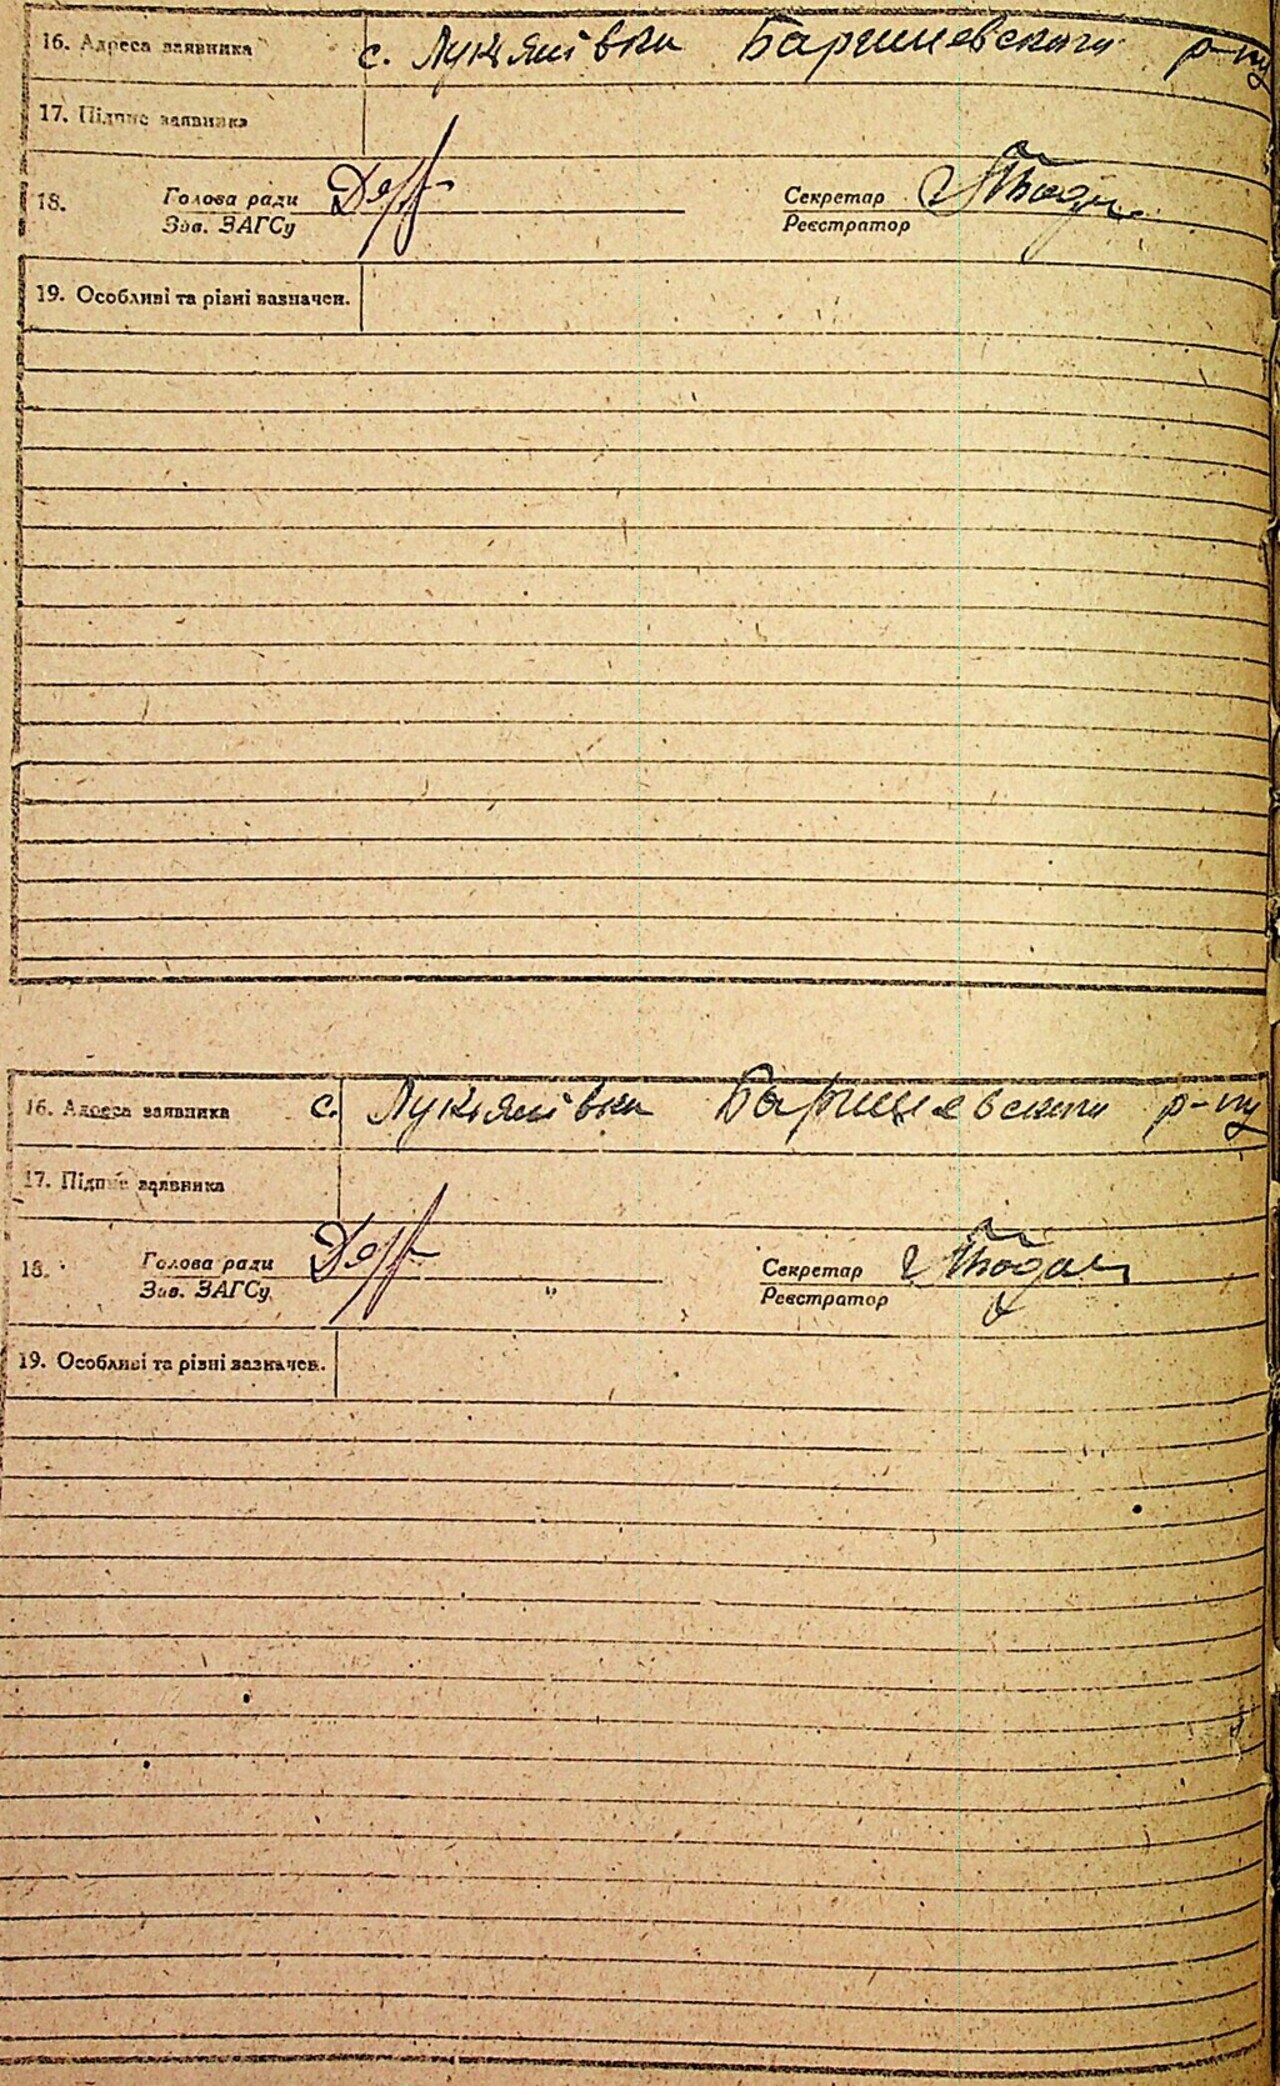 16. Адреса заявника с. Лукянівка Баришевского р-ну
17. Підпис заявника
18. Голова ради Секретар
Зав. ЗАГСу Реєстратор
19. Особливі та різні зазначен.
16. Адреса заявника с. Лукянівка Баришевского р-ну
17. Підпис заявника
18. Голова ради Секретар
Зав. ЗАГСу Реєстратор
19. Особливі та різні зазначен.